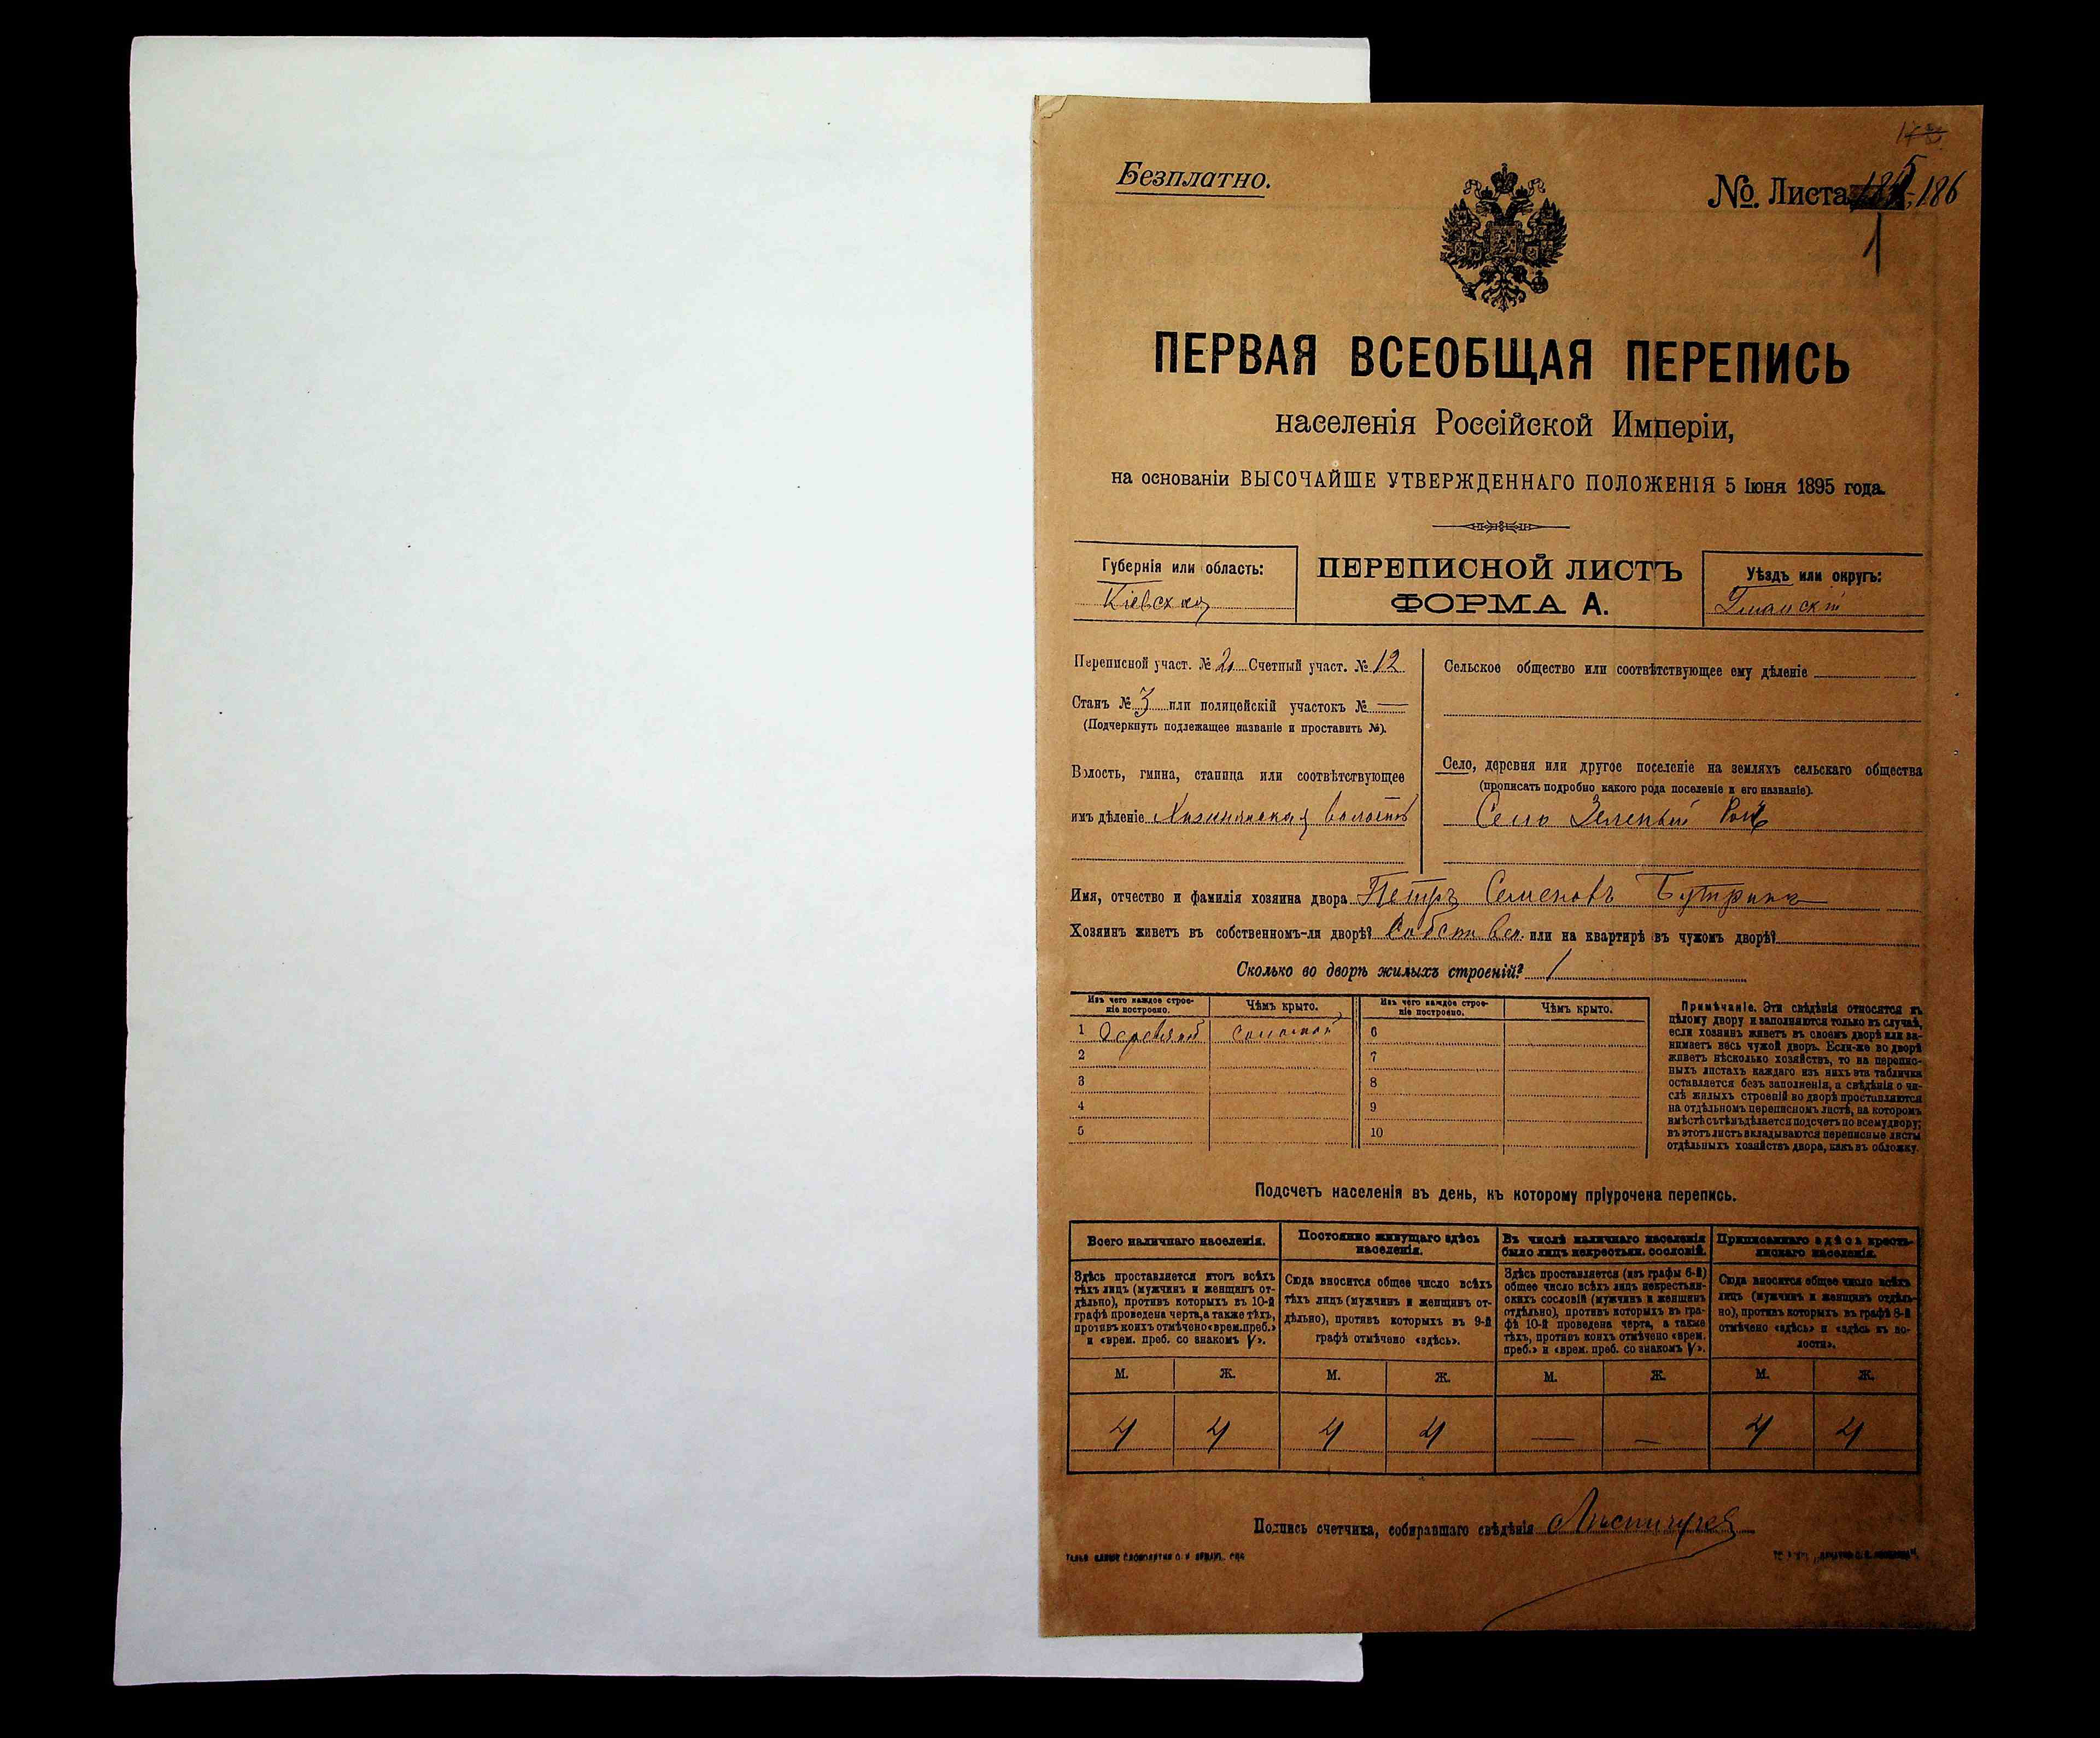 Безплатно.
№ Листа 185-186
1
ПЕРВАЯ ВСЕОБЩАЯ ПЕРЕПИСЬ
населенія Россійской Имперіи,
на основаніи ВЫСОЧАЙШЕ УТВЕРЖДЕННАГО ПОЛОЖЕНІЯ 5 Іюня 1895 года.
Губернія или область:
Кіевская
ПЕРЕПИСНОЙ ЛИСТЪ
ФОРМА А.
Уѣздъ или округъ:
Уманскій
Переписной участ. № 20 Счетный участ. № 12
Станъ № 3 или полицейскій участокъ № —
(Подчеркнуть подлежащее названіе и проставить №).
Волость, гмина, станица или соотвѣтствующее
имъ дѣленіе волость
Сельское общество или соотвѣтствующее ему дѣленіе
Село, деревня или другое поселеніе на земляхъ сельскаго общества
(прописать подробно какого рода поселеніе и его названіе).
Село Зеленый Рогъ
Имя, отчество и фамилія хозяина двора Петръ Семеновъ
Хозяинъ живетъ въ собственномъ-ли дворѣ? Собствен. или на квартирѣ въ чужомъ дворѣ?
Сколько во дворѣ жилыхъ строеній? 1
Изъ чего каждое строе-
ніе построено.
Чѣмъ крыто.
Изъ чего каждое строе-
ніе построено.
Чѣмъ крыто.
1 Деревяной Соломой 6
2 7
3 8
4 9
5 10
Примѣчаніе. Эти свѣдѣнія относятся къ
цѣлому двору и заполняются только въ случаѣ,
если хозяинъ живетъ въ своемъ дворѣ или за-
нимаетъ весь чужой дворъ. Если-же во дворѣ
живетъ нѣсколько хозяйствъ, то на перепис-
ныхъ листахъ каждаго изъ нихъ эта табличка
оставляется безъ заполненія, а свѣдѣнія о чи-
слѣ жилыхъ строеній во дворѣ проставляются
на отдѣльномъ переписномъ листѣ, на которомъ
вмѣстѣ съ тѣмъ дѣлается подсчетъ по всему двору;
въ этотъ листъ вкладываются переписные листы
отдѣльныхъ хозяйствъ двора, какъ въ обложку.
Подсчетъ населенія въ день, къ которому пріурочена перепись.
Всего наличнаго населенія.
Постоянно живущаго здѣсь
населенія.
Въ числѣ наличнаго населенія
было лицъ некрестьян. сословій.
Приписаннаго здѣсь кресть-
янскаго населенія.
Здѣсь проставляется итогъ всѣхъ
тѣхъ лицъ (мужчинъ и женщинъ от-
дѣльно), противъ которыхъ въ 10-й
графѣ проведена черта, а также тѣхъ,
противъ коихъ отмѣчено «врем. преб.»
и «врем. преб. со знакомъ V».
Сюда вносится общее число всѣхъ
тѣхъ лицъ (мужчинъ и женщинъ от-
дѣльно), противъ которыхъ въ 9-й
графѣ отмѣчено «здѣсь».
Здѣсь проставляется (изъ графы 6-й)
общее число всѣхъ лицъ некрестьян-
скихъ сословій (мужчинъ и женщинъ
отдѣльно), противъ которыхъ въ гра-
фѣ 10-й проведена черта, а также
тѣхъ, противъ коихъ отмѣчено «врем.
преб.» и «врем. преб. со знакомъ V».
Сюда вносится общее число всѣхъ
лицъ (мужчинъ и женщинъ отдѣль-
но), противъ которыхъ въ графѣ 8-й
отмѣчено «здѣсь» и «здѣсь въ во-
лости».
М. Ж. М. Ж. М. Ж. М. Ж.
4 4 4 4 — — 4 4
Подпись счетчика, собиравшаго свѣдѣнія